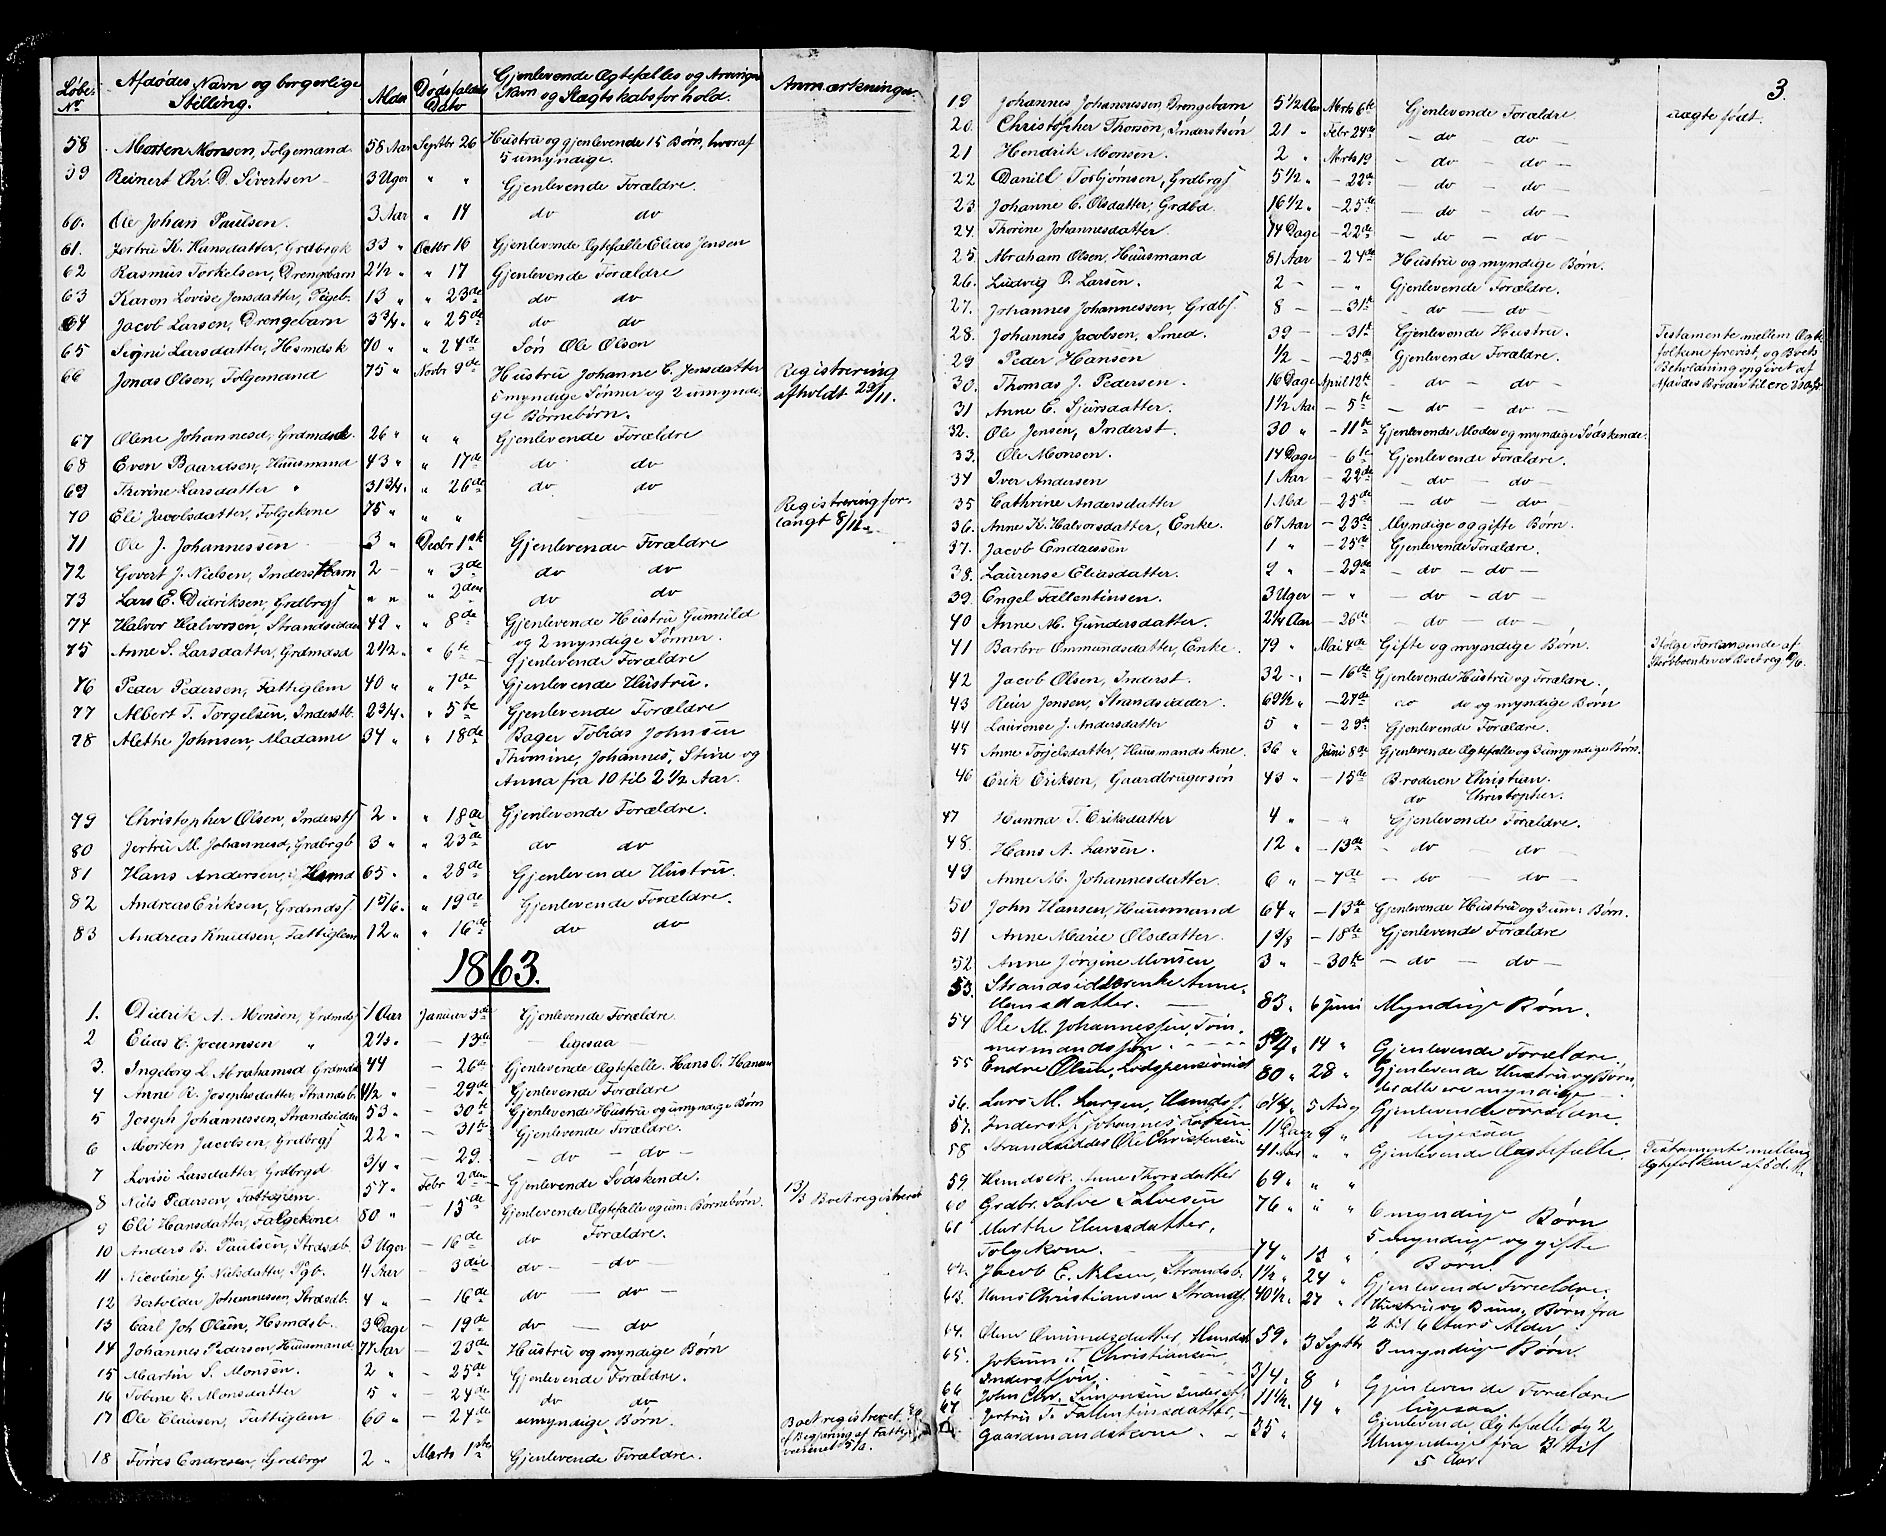 Løbe- No. Afdødes Navn og borgerlige Stilling. Alder Dødsfaldets Dato Gjenlevende Ægtefælles og Arvinges Navn og Slægtskabsforhold. Anmærkninger
58 Morten Monsen, Folgemand 58 Aar Septbr 26 Hustru og gjenlevende 15 Børn, hvoraf
5 umyndige.
59 Reinert Chr. D. Sivertsen 3 Uger " " Gjenlevende Forældre.
60. Ole Johan Paulsen. 3 Aar " 14 do do
61. Jertru K. Hansdatter, Grdbrgk 33 " Octbr 16 Gjenlevende Ægtefælle Elias Jensen
62 Rasmus Torkelsen, Drengebarn 2 1/2 " " 17 Gjenlevende Forældre
63 Karen Lovise Jensdatter, Pigeb. 13 " " 23de do do
64 Jacob Larsen, Drengebarn 3 3/4 " " 25de do do
65 Signi Larsdatter, Hsmdsk 70 " " 24de Søn Ole Olsen
66 Jonas Olsen, Folgemand 75 " Novbr 9de Hustru Johanne C. Jensdatter Registrering
5 myndige Sønner og 2 umyndi- afholdt 29/11.
ge Børnebørn.
67 Olene Johannesd, Grdmdsd. 26 " " " Gjenlevende Forældre
68 Even Baardsen, Huusmand 43 " " 17de do do
69 Thorine Larsdatter " 3 1 3/4. " 26de do do
70 Eli Jacobsdatter, Folgekone 75 " " " Registrering for-
langt 8/12.
71 Ole J. Johannessen 3 " Decbr 1ste Gjenlevende Forældre
72 Govert J. Nielsen, Inderstbarn 2 - " 3de do do
73 Lars E. Didriksen, Grdbrgs " " " 2den do do
74 Halvor Halvorsen, Strandsidder 49 " " 8de Gjenlevende Hustru Gunnild
og 2 myndige Sønner.
75 Anne S. Larsdatter, Grdmdsd 2 1/2 " " 6te Gjenlevende Forældre
76 Peder Pedersen, Fattiglem 40 " " 7de Gjenlevende Hustru.
77 Albert T. Torgelsen, Inderstb. 2 3/4. " 5te Gjenlevende Forældre
78 Alethe Johnsen, Madame 34 " " 18de Bager Tobias Johnsen
Thomine, Johannes, Stine og
Anna fra 10 til 2 1/2 Aar.
79 Christopher Olsen, Inderstf 2 " " 18de Gjenlevende Forældre.
80 Jertru M. Johannesd, Grdbrgb 3 " " 23de do do
81 Hans Andersen, Hsmd 65 " " 28de Gjenlevende Hustru.
82 Andreas Eriksen, Grdmdsf 1 5/6. " 19de Gjenlevende Forældre.
83 Andreas Knudsen, Fattiglem 12 " " 16de do do
1863.
1. Didrik A. Monsen, Grdmdsf 1 Aar Januar 3de Gjenlevende Forældre.
2 Elias C. Jocumsen " 2 1/3. - 13de ligesaa
3. Ingborg L. Abrahamsd Grdmdsk 44 - 26de Gjenlevende Ægtefælle. Hans O. Hansen
4 Anne R. Josephsdatter, Strandsb. 4 1/2 " - 29de Gjenlevende Forældre
5 Joseph Johannessen, Strandsidder 53 " - 30te Gjenlevende Hustru og umyndige Børn
6 Morten Jacobsen, Grdbrgs 22 " - 31te Gjenlevende Forældre.
7 Lovise Larsdatter, Grdbrgd 3/4 " - 29. - do - do -
8 Niels Pedersen, Fattiglem. 57 " Febr 2den Gjenlevende Sødskende.
9 Eli Hansdatter, Folgekone 80 " - 15de Gjenlevende Ægtefælle og um. Børnebørn. 13/3 Boet registreret
10 Anders B. Paulsen, Strdsdb. 3 Uger - 16de do Forældre.
11 Nicoline G. Nielsdatter, Pgb. 4 Aar - 3die do - do -
12 Bertolder Johannessen, Strdsdb. 4 " - 16de do - do -
13 Carl Joh Olsen, Hsmdsb. 3 Dage - 19de do - do
14 Johannes Pedersen, Huusmand 77 Aar - 23de Hustru og myndige Børn
15 Martin S. Monsen. 2 " - 25de Gjenlevende Forældre.
16 Tobine C. Monsdatter 5 " - 24de do do
17 Ole Clausen, Fattiglem 60 " - 24de umyndige Børn. Boet registreret
Begjæring af Fattig-
væsenet
18 Torres Endresen, Grdbrgs 2 " Marts 1ste Gjenlevende Forældre.
3.
19 Johannes Johannessen, Drengebarn 5 1/2 Aar Marts 6te Gjenlevende Forældre uægte født.
20. Christopher Thorsen, Inderstsøn 21 " Febr 24de - do - do -
21 Hendrik Monsen. 2 " Marts 19 - do - do -
22 Daniel Torbjørnsen, Grdbrgs 5 1/2 " - 22de - do - do -
23. Johanne C. Olsdatter, Grdbd. 16 1/2 " - 25de - do - do -
24. Thorine Johannesdatter 14 Dage - 22de - do - do -
25. Abraham Olsen, Huusmand 81 Aar - 24de Hustru og myndige Børn.
26. Ludvig P. Larsen. 2 - - " Gjenlevende Forældre.
27. Johannes Johannessen, Grdbs. 8 - - 31te - do - do -
28. Johannes Jacobsen, Smed. 39 - - 31te Gjenlevende Hustru. Testamente mellem Ægte-
29 Peder Hansen 1/2 - - 25de Gjenlevende Forældre. folkene forevist, og Boets
30. Thomas J. Pedersen. 16 Dage April 12te - do - do - Beholdning opgivet af
31 Anne C. Sjursdatter. 1 1/2 Aar - 5te - do - do -
32. Ole Jensen, Inderst. 30 " - 11te Gjenlevende Moder og myndige Sødskende.
33. Ole Monsen. 14 Dage - 6te Gjenlevende Forældre.
34 Iver Andersen 1 Aar - 22de - do - do -
35 Cathrine Andersdatter 1 Md - 25de - do - do -
36. Anne K. Halvorsdatter, Enke. 67 Aar - 23de Myndige og gifte Børn.
37. Jacob Endresen 1 " - 25de Gjenlevende Forældre.
38. Laurense Eliasdatter. 2 " - 29de - do - do -
39. Engel Fallentinsen. 3 Uger - " - do - do -
40 Anne M. Gundersdatter. 2 1/4 Aar - 26de - do - do -
41 Barbro Ommundsdatter, Enke 79 " Mai 4de Gifte og myndige Børn. Ifølge Forlangende af
42 Jacob Olsen, Inderst. 32 - " - 16de Gjenlevende Hustru og Forældre.
43 Reier Jensen, Strandsidder. 69 1/2 " - 27de do do og myndige Børn
44 Laurense J. Andersdatter 5 " - 29de Gjenlevende Forældre.
45 Anne Torjelsdatter, Huusmandskne. 36 " Juni 8de Gjenlevende Ægtefælle og 3 umyndige Børn.
46 Erik Eriksen, Gaardbrugersøn 43 " - 15de Broderen Christian.
do Christopher.
47 Hanna T. Eriksdatter 4 " - " Gjenlevende Forældre.
48. Hans A. Larsen. 12 " - 13de - do - do -
49 Anne M. Johannesdatter. 6 " - 7de - do - do -
50 John Hansen, Huusmand 64 " - 13de Gjenlevende Hustru og 3 um: Børn.
51 Anne Marie Olsdatter. 1 3/8 - 18de Gjenlevende Forældre
52 Anne Jørgine Monsen 3 " - 30te - do - do -
53. Strandsidderenke Anne
Hansdatter. 83 " 6 Juni Myndige Børn.
54 Ole M. Johannessen, Tøm-
mermandssøn. 14 " Gjenlevende Forældre.
55 Endre Olsen, Lodspensionist 80 " 28 " Gjenlevende Hustru og Børn,
der alle ere myndige
56. Lars M. Larsen, Hsmdss. 5 Aug Gjenlevende Forældre.
57. Inderstf. Johannes 11 Dage 9 " ligesaa
58 Strandsidder Ole Christensen 41 Aar " " Gjenlevende Ægtefælle. Testamente mellem
Ægtefolkene af
59. Hsmdsek. Anne Thorsdatter 69 " " "
60 Grdbr. Salve Salvesen 76 " " " 6 myndige Børn
61 Marthe Hansdatter, 5 myndige og gifte
Folgekone. 74 " 13 " Børn.
62. Jacob E. Nilsen, Strandsb. 1 1/2 " 24 " Gjenlevende Forældre.
63. Hans Christiansen Strands. 40 1/2 " 27 " Hustru og 3 um. Børn fra
2 til 6 Aars Alder.
64. Olene Ommundsdatter, Hsmdsk 59 " 3 Septbr 3 myndige Børn.
65. Jokum T. Christiansen,
Inderstsøn. 3/4 " 8 " Gjenlevende Forældre
66 John Chr. Simonsen Inderst. 11 1/2 " 14 " ligesaa
67 Jertru T. Fallentinsdatter, Gjenlevende Ægtefælle og 2
Gaardmandskone. - 35 " Umyndige fra 3 til
5 Aar.